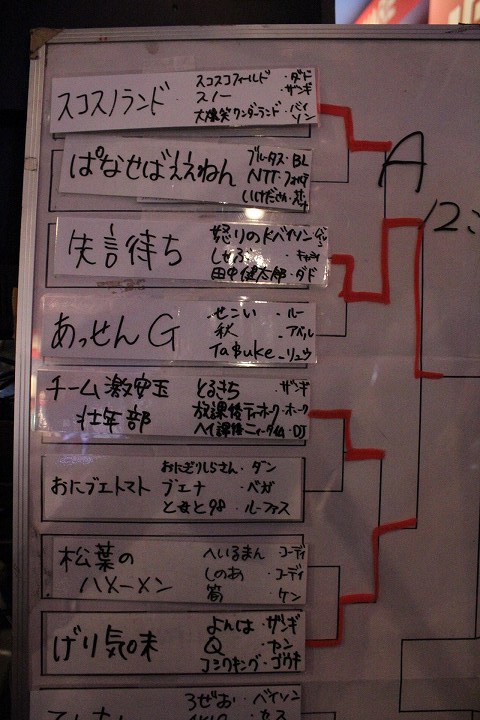 スコスノランド
スコスコフィールド・ダド
スノー・ザンギ
大爆笑ワンダーランド・バイソン
ぱなせばええねん
ブルータス・BL
NTT・フォルテ
いけださん
失言待ち
怒りのドバイソン
しゃぶ
田中健太郎・ダド
あっせんG
せこい・ルー
秋・アベル
Ta$uke・リュウ
チーム激安玉
壮年部
とるきち・ザンギ
放課後ティーホーク・ホーク
DJ
おにブエトマト
おにぎりしらさん・ダン
ブエナ・ベガ
と女と98・ルーファス
松葉の
ハメーメン
へいるまん コーディ
しのあ・コーディ
筍・ケン
げり気味
よんは・ザンギ
Q・ヤン
コシクキング・ゴウキ
ろぜお・ベイソン
A
12: